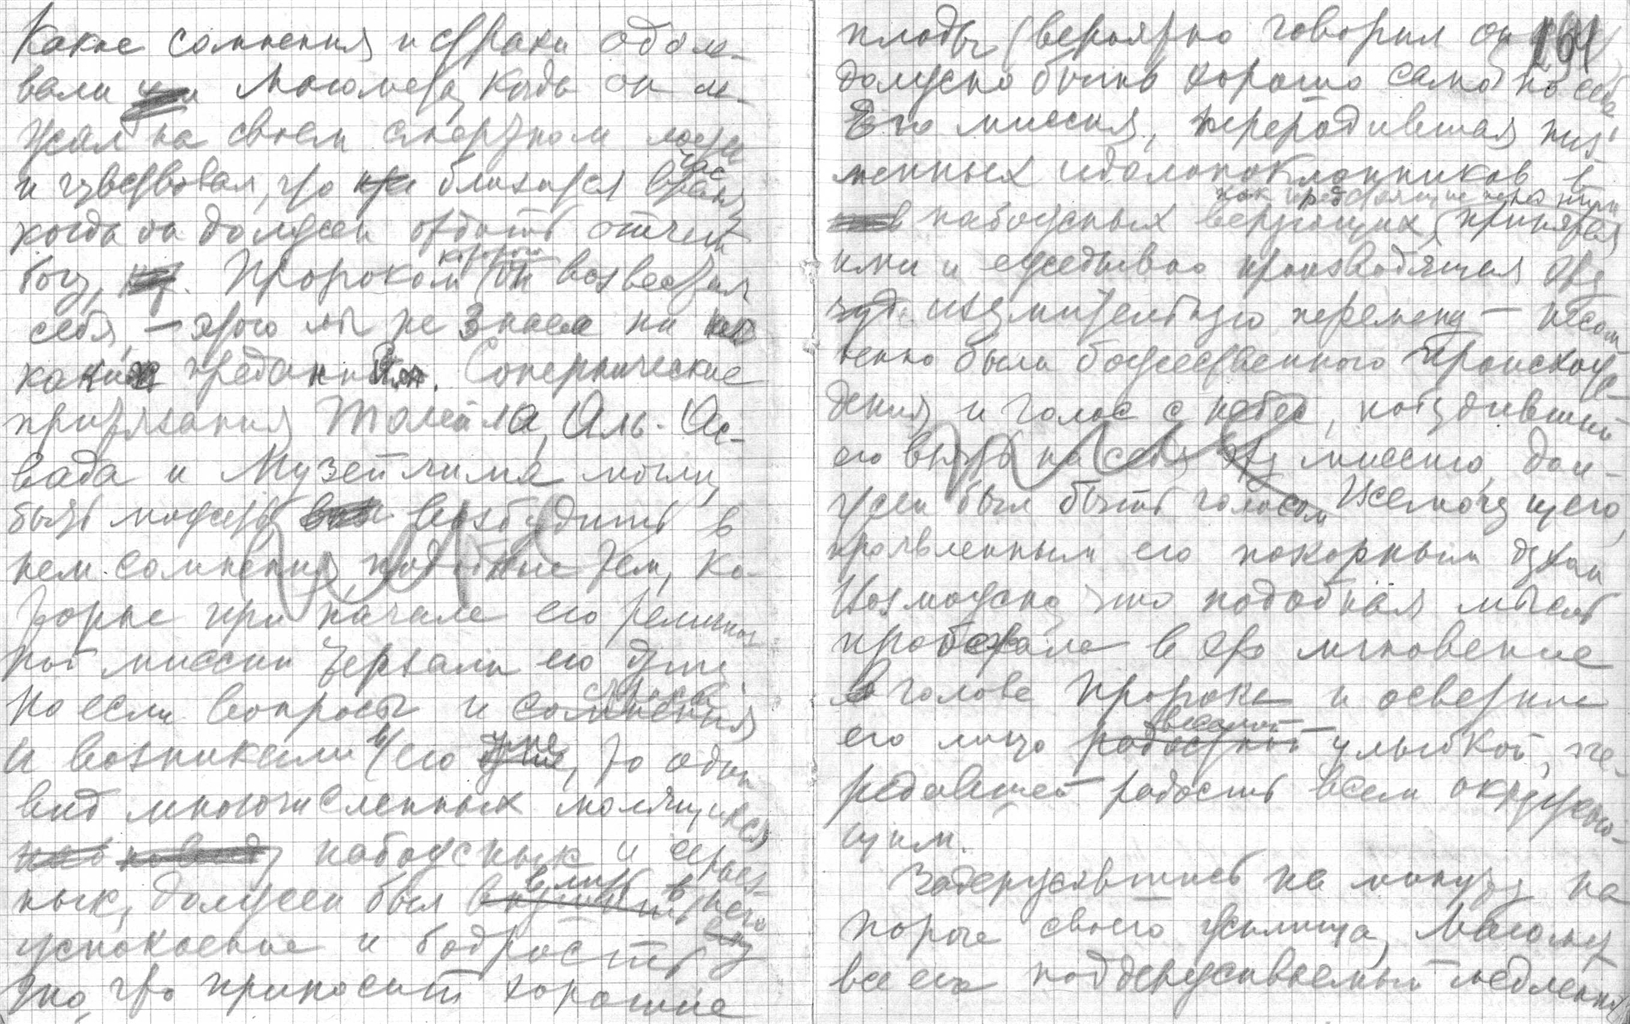 Какие сомнения и страхи одоле-
вали Магомета, когда он ле-
жал на своем смертном ложе
и чувствовал, что близится час
когда он должен отдать отчет
богу. Пророком которого он возвестил
себя, — этого мы не знаем ни из
каких преданий. Сопернические
притязания Толейха, Аль-Ас-
вада и Музейлима могли,
быть может возбудить в
нем сомнения подобные тем, ко-
торые при начале его религиоз-
ной миссии терзали его душу.
Но если вопросы и страхи
и возникали в его уме, то один
вид многочисленных молящихся
набожных и серьез-
ных, должен был влить в него
успокоение и бодрость
то, что приносит хорошие
плоды (вероятно говорил он 161
должно быть хорошо само по себе
Его миссия, переродившая низ-
менных идолопоклонников в
набожных верующих, как предстоящие перед ними, принятая
ими и ежедневно производящая эту
изумительную перемену — несом-
ненно была божественного происхож-
дения и голос с небес, побудивший
его взять на себя эту миссию, дол-
жен был быть голосом Всемогущего,
проявленным его покорным духом
Возможно что подобная мысль
пробежала в это мгновение
в голове Пророка и осветила
его лицо веселой улыбкой, пе-
редавшей радость всем окружаю-
щим.
Задержавшись на минуту на
пороге своего жилища, Магомет
все еще поддерживаемый медленно